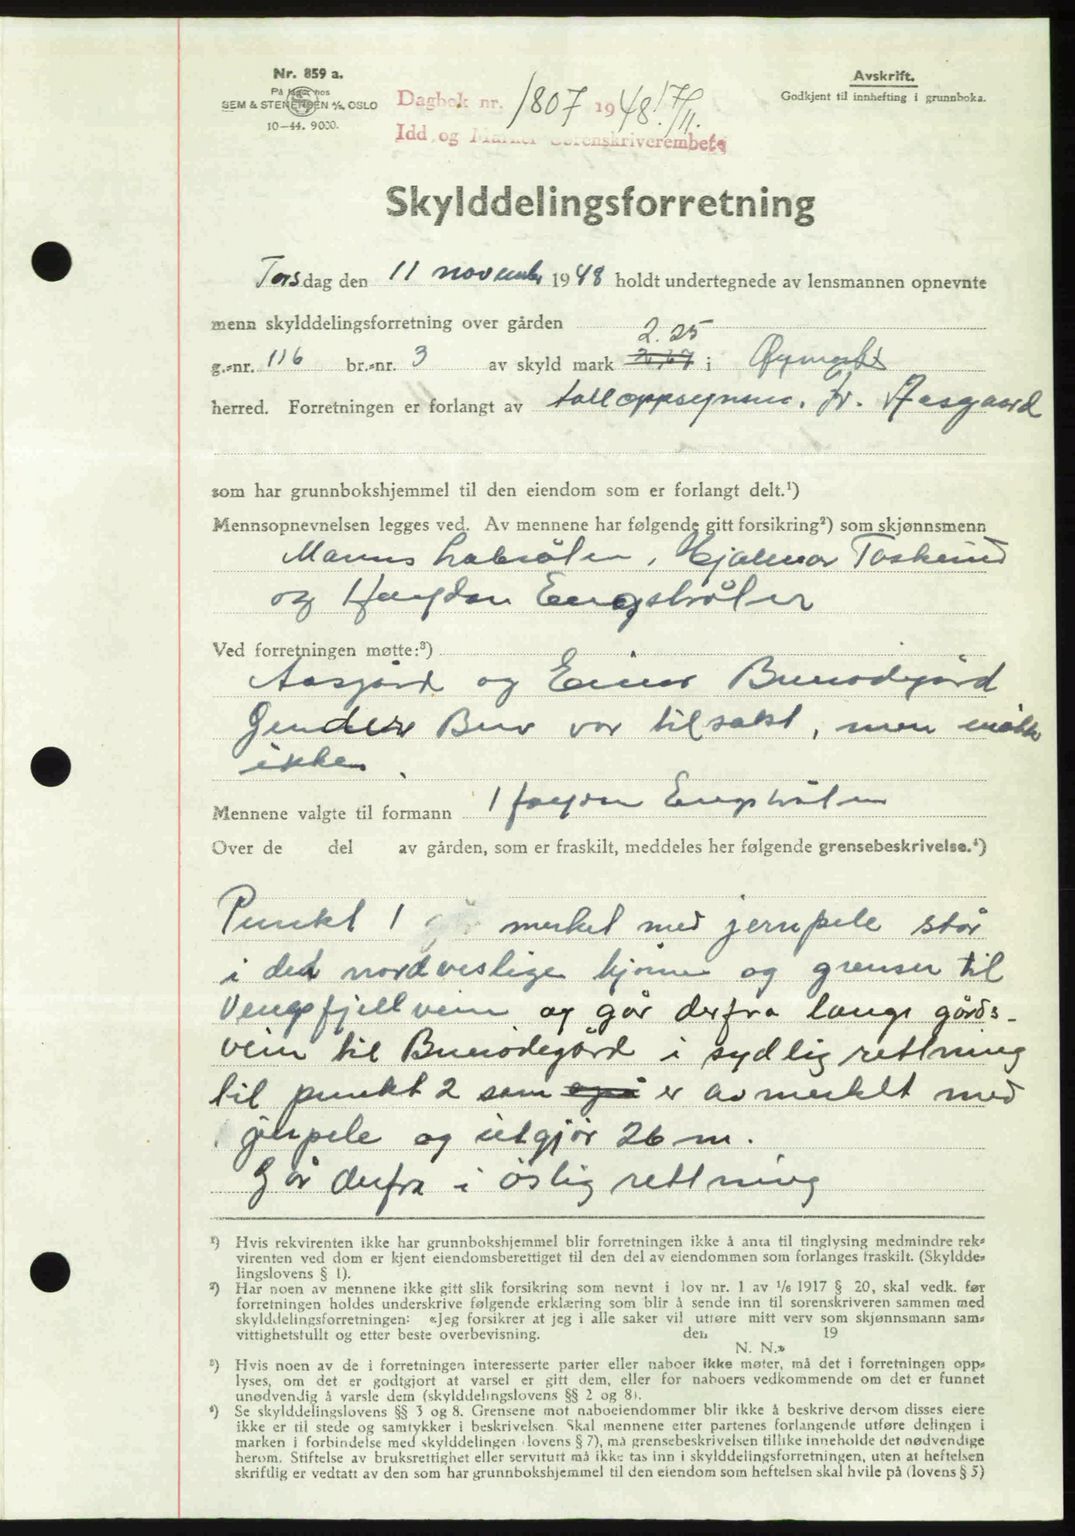 Nr. 859 a.
På lager hos
SEM & STENERSEN A/S, OSLO
10-44. 9000.
Dagbok nr. 1807 1948 17/11.
Idd og Marker Sorenskriverembete
Avskrift.
Godkjent til innhefting i grunnboka.
Skylddelingsforretning
Torsdag den 11 november 1948 holdt undertegnede av lensmannen opnevnte
menn skylddelingsforretning over gården
2.25
g.-nr. 116 br.-nr. 3 av skyld mark i Øymark
herred. Forretningen er forlangt av tolloppsynsm. Fr. Aasgaard
som har grunnbokshjemmel til den eiendom som er forlangt delt.¹)
Mennsopnevnelsen legges ved. Av mennene har følgende gitt forsikring²) som skjønnsmenn
Hjalmar
og
Ved forretningen møtte:³)
Aasgård og Einar
var tilsakt, men møtte
ikke.
Mennene valgte til formann
Over de del av gården, som er fraskilt, meddeles her følgende grensebeskrivelse.⁴)
Punkt 1 merket med jernpele står
i det nordvestlige hjørne og grenser til
og går derfra langs gårds-
vein til i sydlig rettning
til punkt 2 som er avmerkt med
jernpele og utgjør 26 m.
Går derfra i østlig rettning
¹) Hvis rekvirenten ikke har grunnbokshjemmel blir forretningen ikke å anta til tinglysing medmindre rek-
virenten ved dom er kjent eiendomsberettiget til den del av eiendommen som forlanges fraskilt. (Skyldde-
lingslovens § 1).
²) Har noen av mennene ikke gitt slik forsikring som nevnt i lov nr. 1 av 1/6 1917 § 20, skal vedk. før
forretningen holdes underskrive følgende erklæring som blir å sende inn til sorenskriveren sammen med
skylddelingsforretningen: «Jeg forsikrer at jeg i alle saker vil utføre mitt verv som skjønnsmann sam-
vittighetsfullt og etter beste overbevisning. den 19
N. N.»
³) Hvis noen av de i forretningen interesserte parter eller naboer ikke møter, må det i forretningen opp-
lyses, om det er godtgjort at varsel er gitt dem, eller for naboers vedkommende om det er funnet
unødvendig å varsle dem (skylddelingslovens §§ 2 og 8).
⁴) Se skylddelingslovens §§ 3 og 8. Grensene mot naboeiendommer blir ikke å beskrive dersom disses eiere
ikke er til stede og samtykker i beskrivelsen. Skal mennene etter partenes forlangende utføre delingen i
marken i forbindelse med skylddelingen (lovens § 7), må grensebeskrivelsen tillike inneholde det nødvendige
herom. Stiftelse av bruksrettighet eller servitutt må ikke tas inn i skylddelingsforretningen, uten at heftelsen
skriftlig er vedtatt av den som har grunnbokshjemmel til den eiendom som heftelsen skal hvile på (lovens § 5)